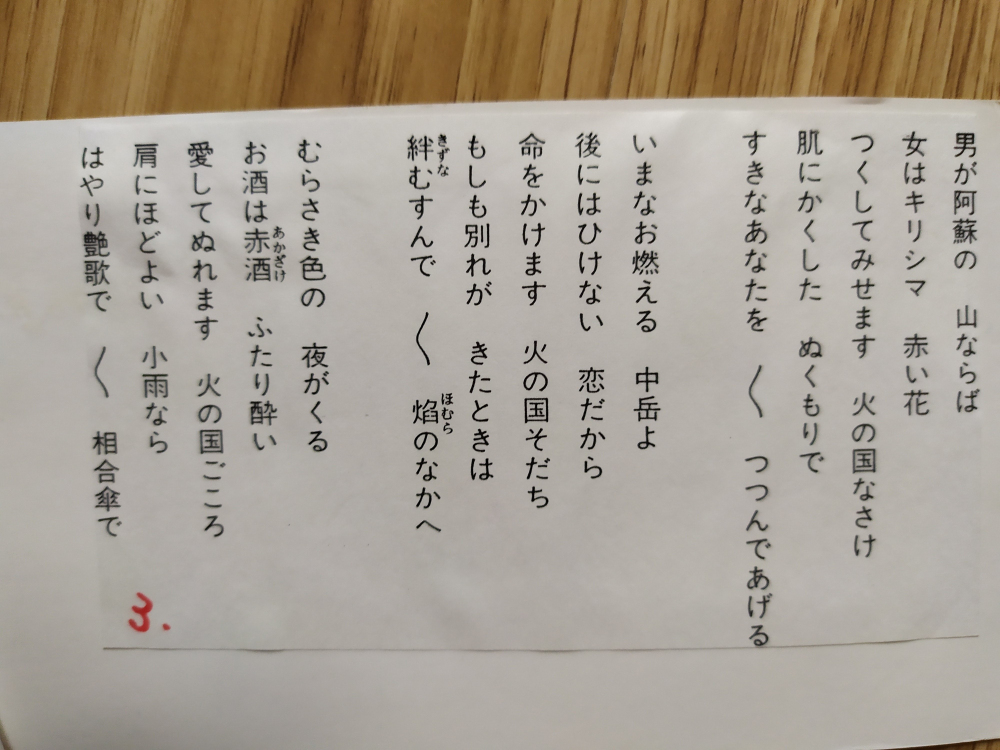 男が阿蘇の　山ならば
女はキリシマ　赤い花
つくしてみせます　火の国なさけ
肌にかくした　ぬくもりで
すきなあなたを　〱　つつんであげる
いまなお燃える　中岳よ
後にはひけない　恋だから
命をかけます　火の国そだち
もしも別れが　きたときは
絆むすんで　〱　焰のなかへ
きずな
ほむら
むらさき色の　夜がくる
お酒は赤酒　ふたり酔い
あかざけ
愛してぬれます　火の国ごころ
肩にほどよい　小雨なら
はやり艶歌で　〱　相合傘で
3.